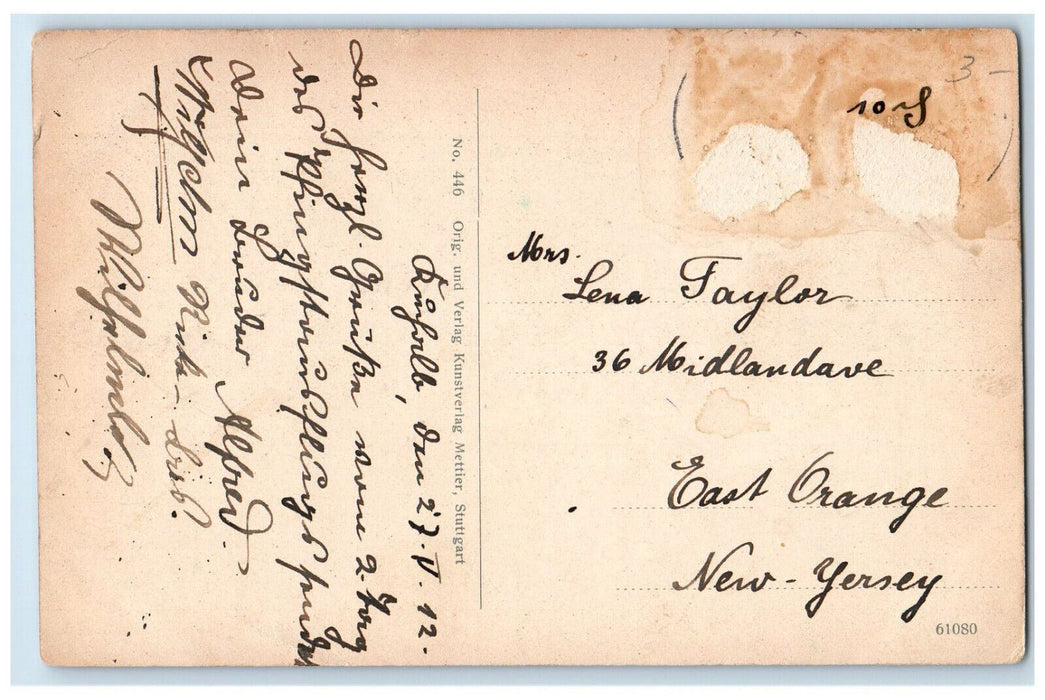 Kuhalb, den 27.V.12.
Die herzl. Grüße vom 2. Tag
des Pfingstausfluges sendet
Dein Bruder Alfred.
Wilhelm
No. 446 Orig. und Verlag Kunstverlag Mettier, Stuttgart
3 -
10 S
Mrs.
Lena Taylor
36 Midlandave
East Orange
New-Yersey
61080